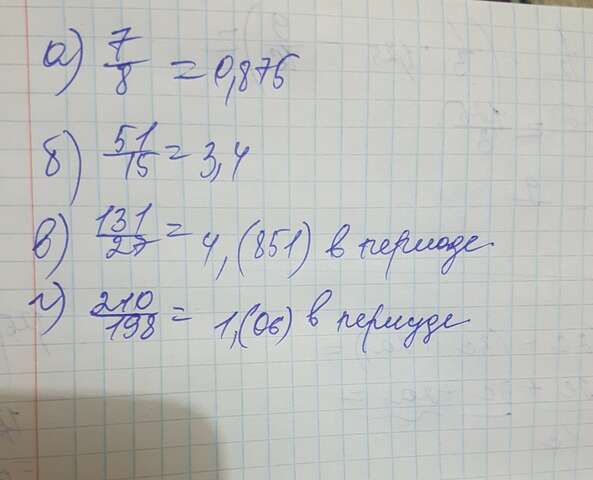 а) 7/8 = 0,875
б) 51/15 = 3,4
в) 131/27 = 4,(851) в периоде
г) 210/198 = 1,(06) в периуде